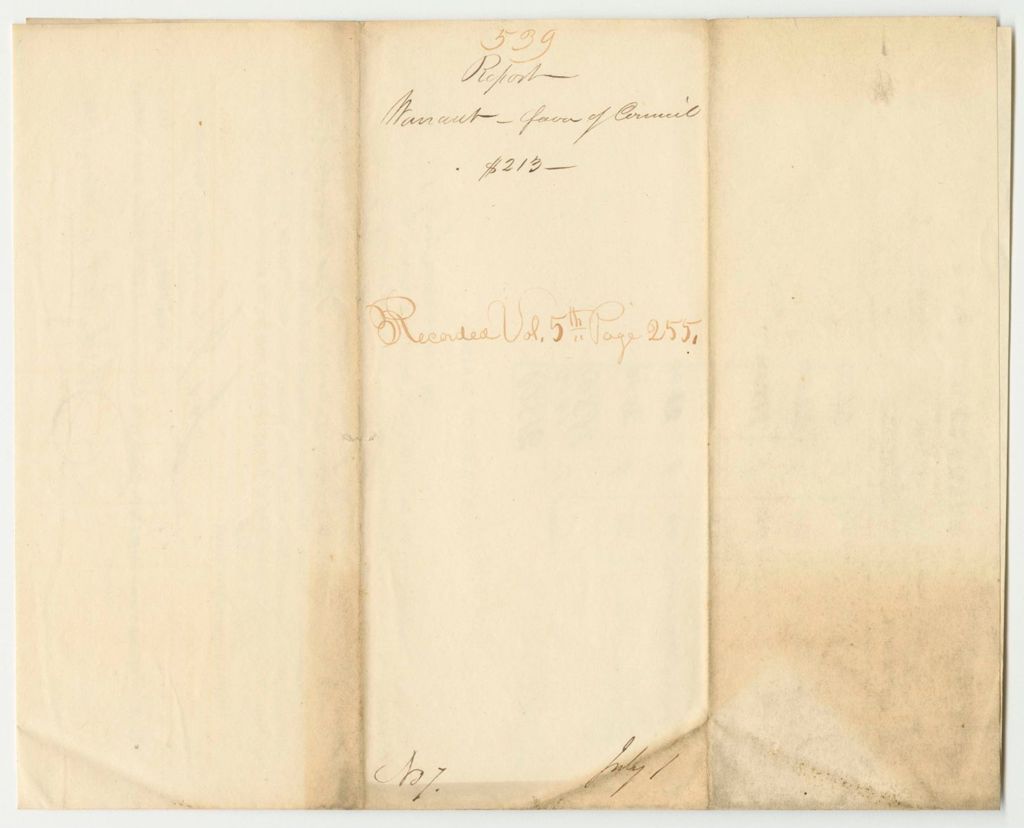 539
Report
Warrant - favor of Council
$213 -
Recorded Vol. 5th Page 255.
No 7.
July 1